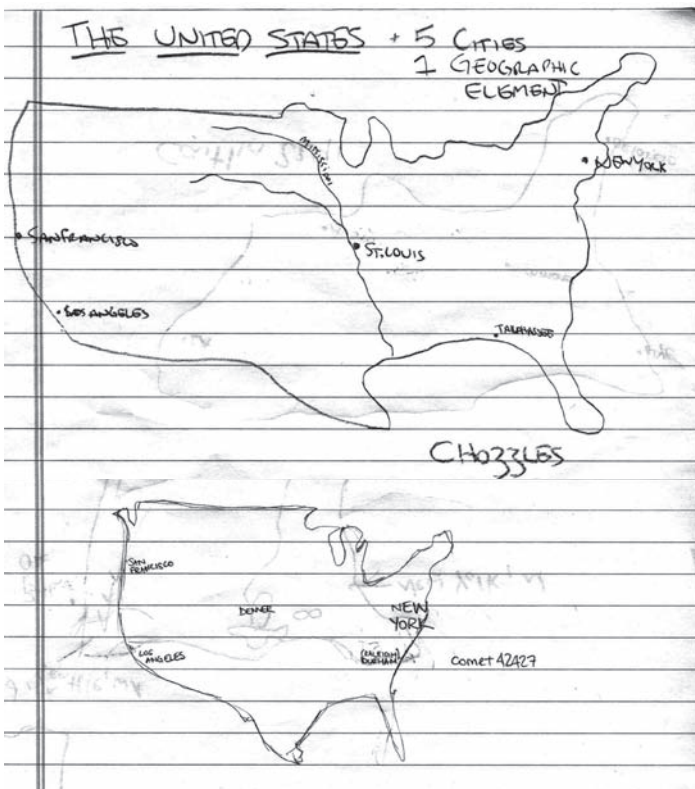 THE UNITED STATES + 5 CITIES
1 GEOGRAPHIC
ELEMENT
MISSISSIPPI
NEW YORK
SAN FRANCISCO
ST. LOUIS
LOS ANGELES
CHOZZLES
SAN
FRANCISCO
DENVER
NEW
YORK
LOS
ANGELES
(RALEIGH)
DURHAM
comet42427